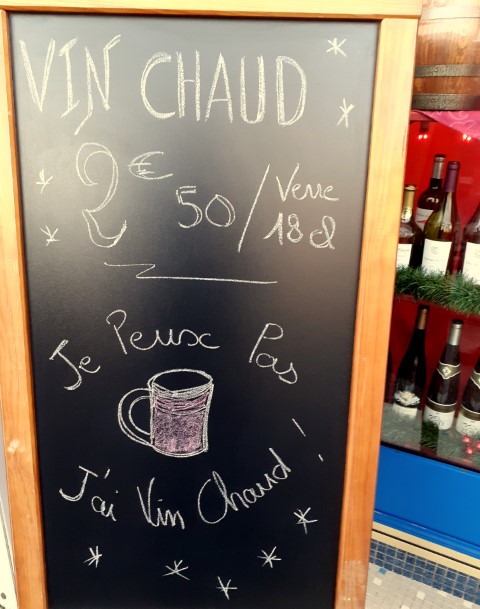 VIN CHAUD
2€50/Verre 18cl
Je Peux Pas
J'ai Vin Chaud!